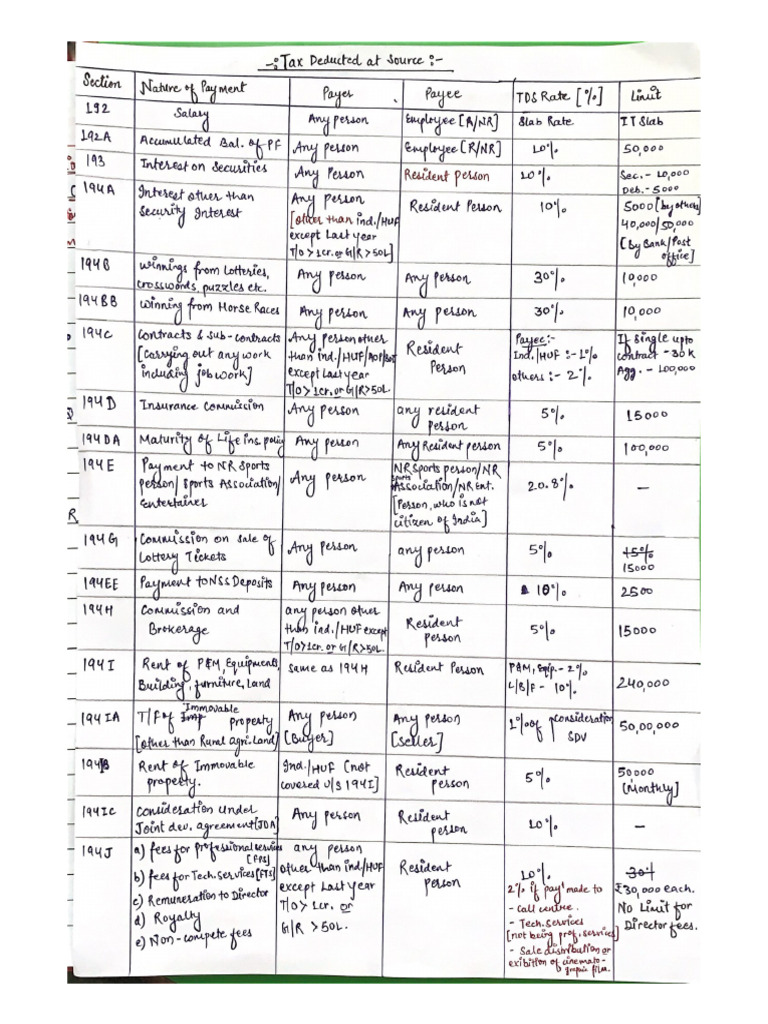 -: Tax Deducted at Source :-
Section Nature of Payment Payer Payee TDS Rate [%] Limit
192 Salary Any person Employee [R/NR] Slab Rate IT Slab
192A Accumulated Bal. of PF Any person Employee [R/NR] 10% 50,000
193 Interest on Securities Any Person Resident person 10% Sec. - 10,000
Deb. - 5000
194A Interest other than Any person Resident Person 10% 5000 [by others]
Security Interest [other than ind./HUF 40,000/50,000
except Last year [By Bank/Post
T/O > 1cr. or G/R > 50L] office]
194B Winnings from Lotteries, Any person Any person 30% 10,000
crosswords, puzzles etc.
194BB Winning from Horse Races Any person Any person 30% 10,000
194C Contracts & Sub-contracts Any person other Resident Payee:- If single upto
[Carrying out any work than ind./HUF/AOP/BOI Person Ind./HUF :- 1% contract - 30K
including job work] except Last year others :- 2% Agg. - 100,000
T/O > 1cr. or G/R > 50L.
194D Insurance Commission Any person any resident 5% 15000
person
194DA Maturity of Life ins. policy Any person Any Resident person 5% 100,000
194E Payment to NR Sports Any person NR Sports person/NR 20.8% -
person/ Sports Association/ Sports Association/NR Ent.
Entertainer [Person, who is not
citizen of India]
194G Commission on sale of Any person any person 5% 15%
Lottery Tickets 15000
194EE Payment to NSS Deposits Any person Any person 10% 2500
194H Commission and any person other Resident 5% 15000
Brokerage than ind./HUF except person
T/O > 1cr. or G/R > 50L.
194I Rent of P&M, Equipments, same as 194H Resident Person P&M, Equip. - 2% 240,000
Building, furniture, Land L/B/F - 10%
194IA T/F of Imp Immovable property Any person Any person 1% of consideration 50,00,000
[other than Rural agri. Land] [Buyer] [Seller] SDV
194IB Rent of Immovable Ind./HUF [not Resident 5% 50000
property. covered u/s 194I] person [Monthly]
194IC Consideration under Any person Resident 10% -
Joint dev. agreement [JDA] person
194J a) fees for Professional services any person Resident 10% 30%
[FPS] other than ind/HUF person 2% if pay' made to ₹30,000 each.
b) fees for Tech. Services [FTS] except Last year - Call centre. No Limit for
c) Remuneration to Director T/O > 1cr. or - Tech. services Director fees.
d) Royalty G/R > 50L. [not being prof. services]
e) Non-compete fees - Sale distribution or
exibition of cinemato-
graphic films.
R